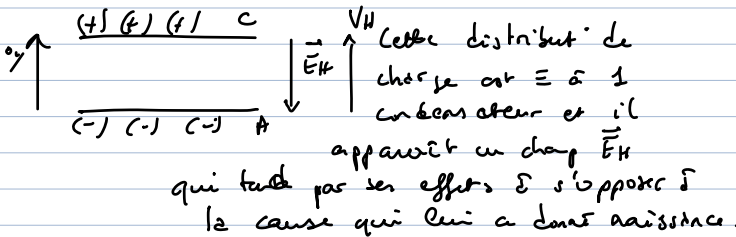 (+) (+) (+) C
oy E⃗H VH
(-) (-) (-) A
Cette distribut° de
charge est ≡ à 1
condensateur et il
apparaît un champ E⃗H
qui tend par ses effets à s'opposer à
la cause qui lui a donné naissance.